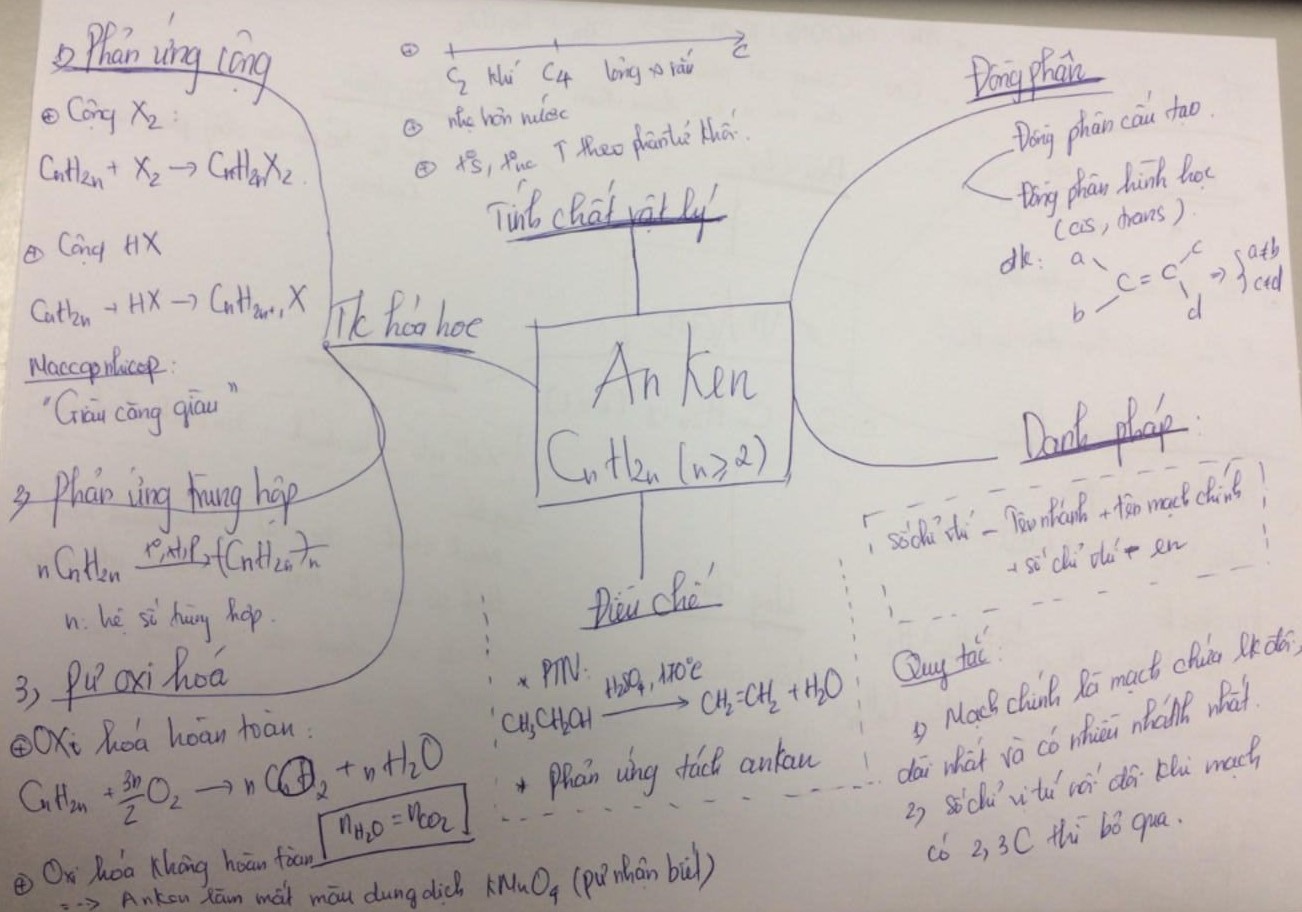 1) Phản ứng cộng
⊕ Cộng X₂:
CnH₂n + X₂ → CnH₂nX₂.
⊕ Cộng HX
CnH₂n + HX → CnH₂n+1X
Maccopnhicop:
"Giàu càng giàu"
2) Phản ứng trùng hợp
nCnH₂n –t°, xt, p→ (CnH₂n)n
n: hệ số trùng hợp.
3) Pư oxi hoá
⊕ Oxi hoá hoàn toàn:
CnH₂n + 3n/2 O₂ → n CO₂ + nH₂O
nH₂O = nCO₂
⊕ Oxi hóa không hoàn toàn
--> Anken làm mất màu dung dịch KMnO₄ (pư nhận biết)
Tc hóa học
⊕ C₂ khí C₄ lỏng → rắn C
⊕ nhẹ hơn nước
⊕ t°s, t°nc ↑ theo phân tử khối.
Tính chất vật lý
An ken
CnH₂n (n≥2)
Điều chế
* PTN:
CH₃CH₂OH –H₂SO₄, 170°C→ CH₂=CH₂ + H₂O
* Phản ứng tách ankan
Đồng phân
Đồng phân cấu tạo.
Đồng phân hình học
(cis, trans).
đk: a c
C = C => { a≠b
b d c≠d
Danh pháp:
số chỉ vị trí – Tên nhánh + tên mạch chính
+ số chỉ vị trí – en
Quy tắc:
1) Mạch chính là mạch chứa lk đôi,
dài nhất và có nhiều nhánh nhất.
2) số chỉ vị trí nối đôi khi mạch
có 2, 3C thì bỏ qua.